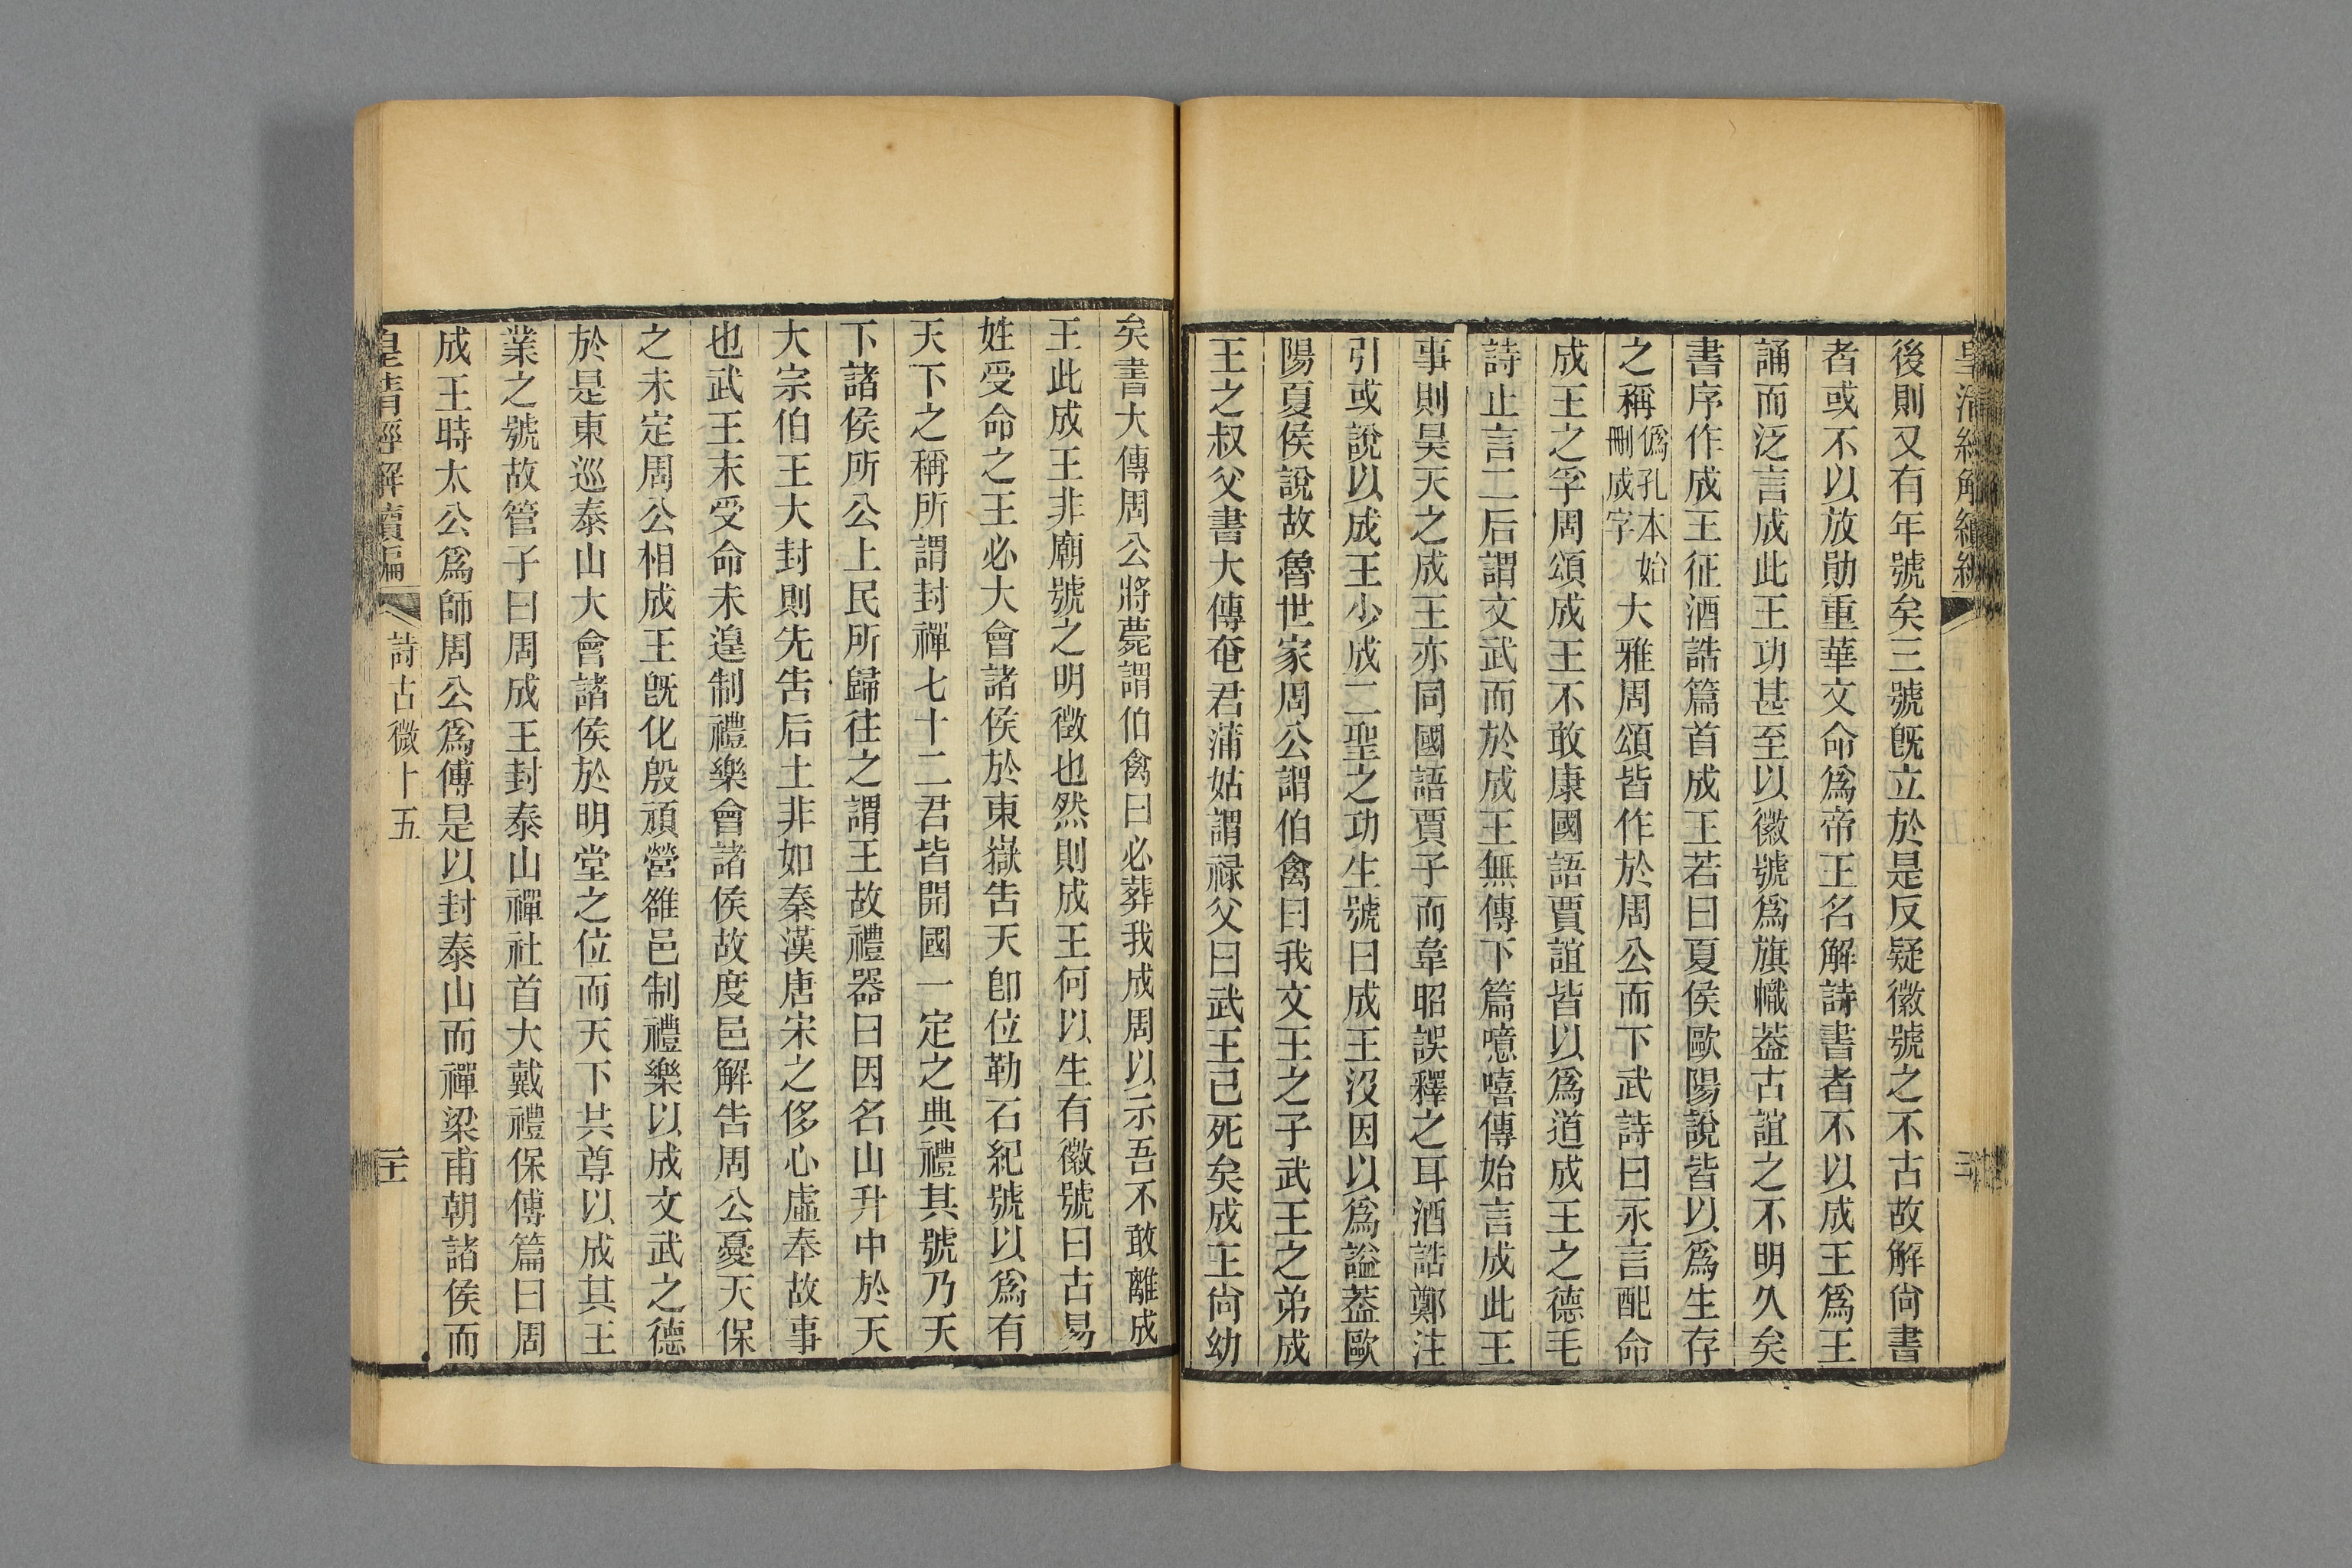 後則又有年號矣三號旣立於是反疑徽號之不古故解尙書
者或不以放勛重華文命爲帝王名解詩書者不以成王爲王
誦而泛言成此王功甚至以徽號爲旗幟葢古誼之不明久矣
書序作成王征酒誥篇首成王若曰夏侯歐陽說皆以爲生存
之稱僞孔本始刪成字大雅周頌皆作於周公而下武詩曰永言配命
成王之孚周頌成王不敢康國語賈誼皆以爲道成王之德毛
詩止言二后謂文武而於成王無傳下篇噫嘻傳始言成此王
事則昊天之成王亦同國語賈子而韋昭誤釋之耳酒誥鄭注
引或說以成王少成二聖之功生號曰成王沒因以爲謚葢歐
陽夏侯說故魯世家周公謂伯禽曰我文王之子武王之弟成
王之叔父書大傳奄君蒲姑謂祿父曰武王已死矣成王尙幼
矣書大傳周公將薨謂伯禽曰必葬我成周以示吾不敢離成
王此成王非廟號之明徵也然則成王何以生有徽號曰古易
姓受命之王必大會諸侯於東嶽告天卽位勒石紀號以爲有
天下之稱所謂封禪七十二君皆開國一定之典禮其號乃天
下諸侯所公上民所歸往之謂王故禮器曰因名山升中於天
大宗伯王大封則先告后土非如秦漢唐宋之侈心虛奉故事
也武王末受命未遑制禮樂會諸侯故度邑解告周公憂天保
之未定周公相成王旣化殷頑營雒邑制禮樂以成文武之德
於是東巡泰山大會諸侯於明堂之位而天下共尊以成其王
業之號故管子曰周成王封泰山禪社首大戴禮保傅篇曰周
成王時太公爲師周公爲傅是以封泰山而禪梁甫朝諸侯而
皇淸經解續編 詩古微十五